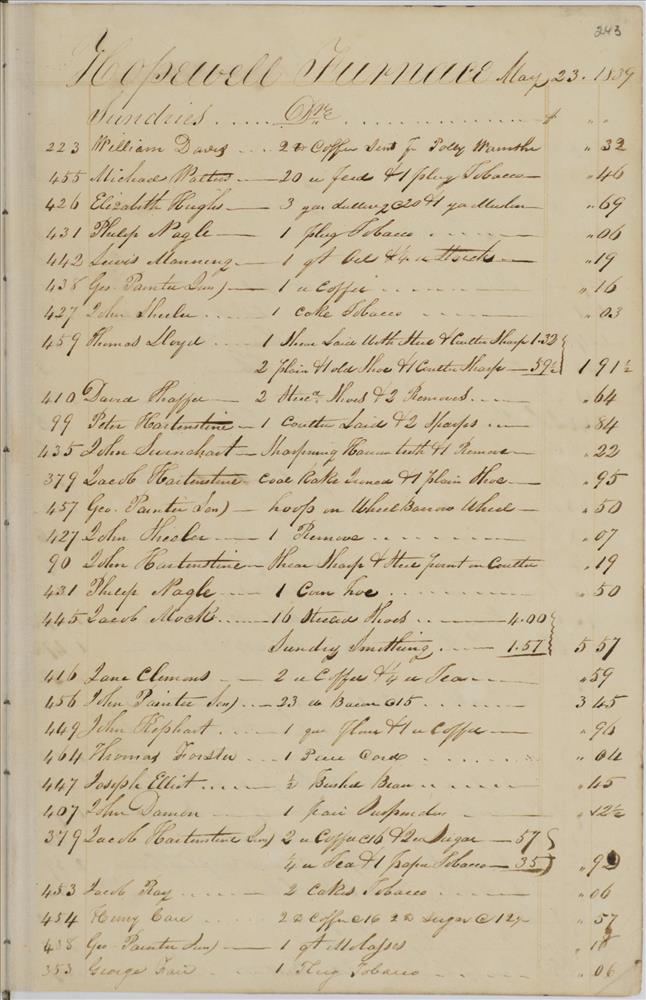 243
Hopewell Furnace May 23. 1839
Sundries Drs
223 William Davis 2 lb Coffee Sent fr Polly 〃 32
455 Michael 20 lb feed & 1 plug Tobacco 〃 46
426 Elizabeth Hughs 3 yds @20 & 1 yd Muslin 〃 69
431 Philip Nagle 1 plug Tobacco 〃 06
442 Lewis Manning 1 qt & ¼ lb 〃 19
438 Geo. Painter Sen) 1 lb Coffee 〃 16
427 John Sheeler 1 Cake Tobacco 〃 03
459 Thomas Lloyd 1 Shear Laid With Steel & Coulter Sharp 1.32
2 plain & 1 old Shoe & 1 Coulter Sharp 59½ 1 91½
410 David Shaffer 2 Shoes & 2 Removes 〃 64
99 Peter Hartenstine 1 Coulter Laid & 2 Sharps 〃 84
435 John Sharpning Harrow teeth & 1 Remove 〃 22
379 Jacob Hartenstine Coal Rake & 1 plain Shoe 〃 95
457 Geo. Painter Sen) hoop on Wheel Barrow Wheel 〃 50
427 John Sheeler 1 Remove 〃 07
90 John Hartenstine Shear Sharp & Steel point on Coulter 〃 19
431 Philip Nagle 1 Corn hoe 〃 50
445 Jacob Mock 16 Steeled Shoes 4.00
Sundry Smithing 1.57 5 57
416 Jane Clemons 2 lb Coffee & ¼ lb Tea 〃 59
456 John Painter Sen) 23 lb Bacon @15 3 45
449 John Kephart 1 qr flour & 1 lb Coffee 〃 96
464 Thomas Forster 1 Piece Cord 〃 04
447 Joseph Elliot ½ Bushel Bran 〃 45
407 John Damon 1 pair Suspenders 〃 12½
379 Jacob Hartenstine 2 lb Coffee @16 & 2 lb Sugar 57
¼ lb Tea & 1 paper Tobacco 35 〃 92
453 Jacob Ray 2 Cakes Tobacco 〃 06
454 Henry Care 2 lb Coffee @16 2 lb Sugar @12½ 〃 57
438 Geo. Painter Sen) 1 qt Molasses 〃 18
353 George Fair 1 Plug Tobacco 〃 06